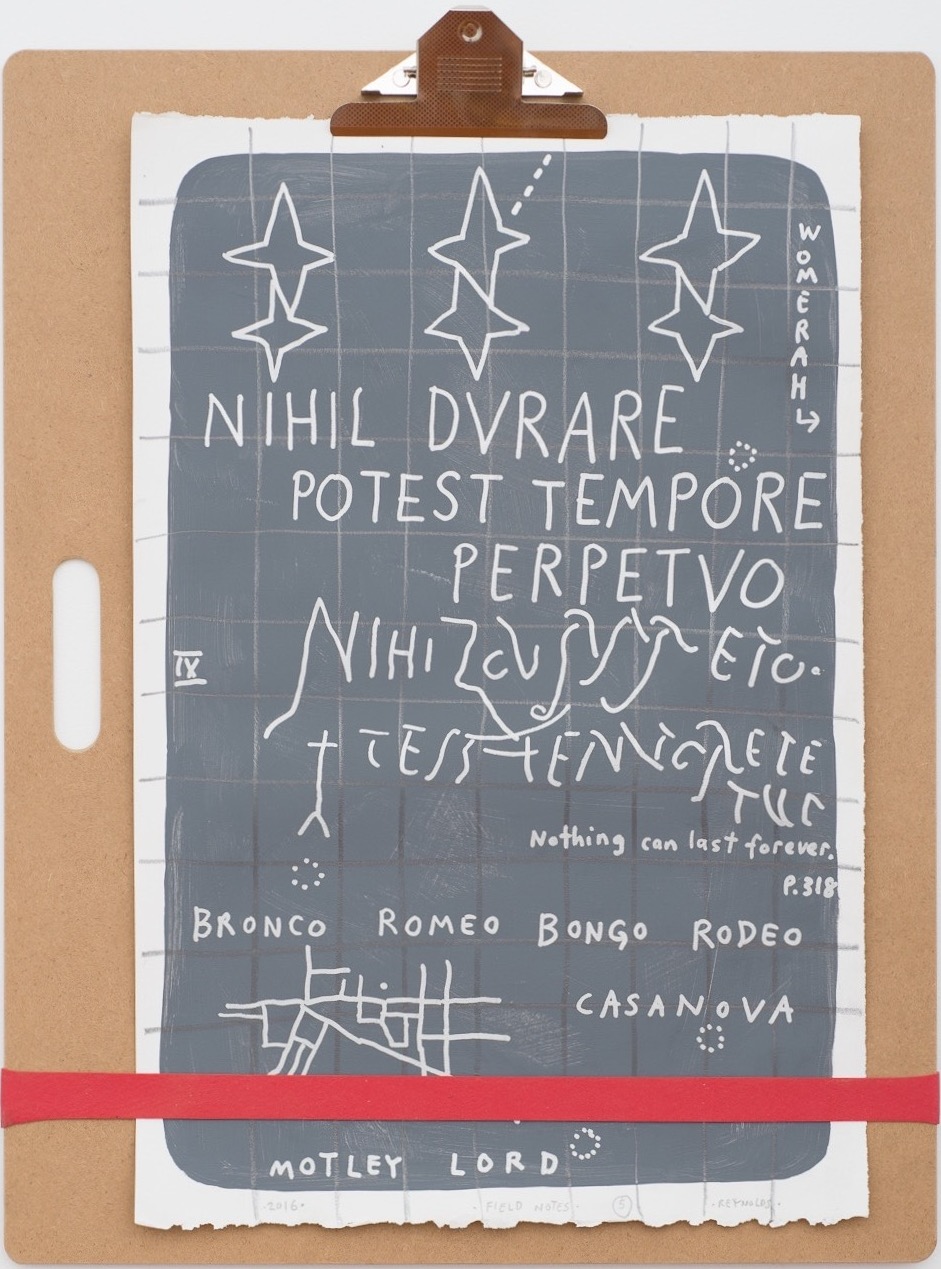 WOMERAH
NIHIL DVRARE
POTEST TEMPORE
PERPETVO
IX
NIHI
Nothing can last forever.
P.318
BRONCO ROMEO BONGO RODEO
CASANOVA
MOTLEY LORD
·2016· ·FIELD NOTES· 5 ·REYNOLDS·